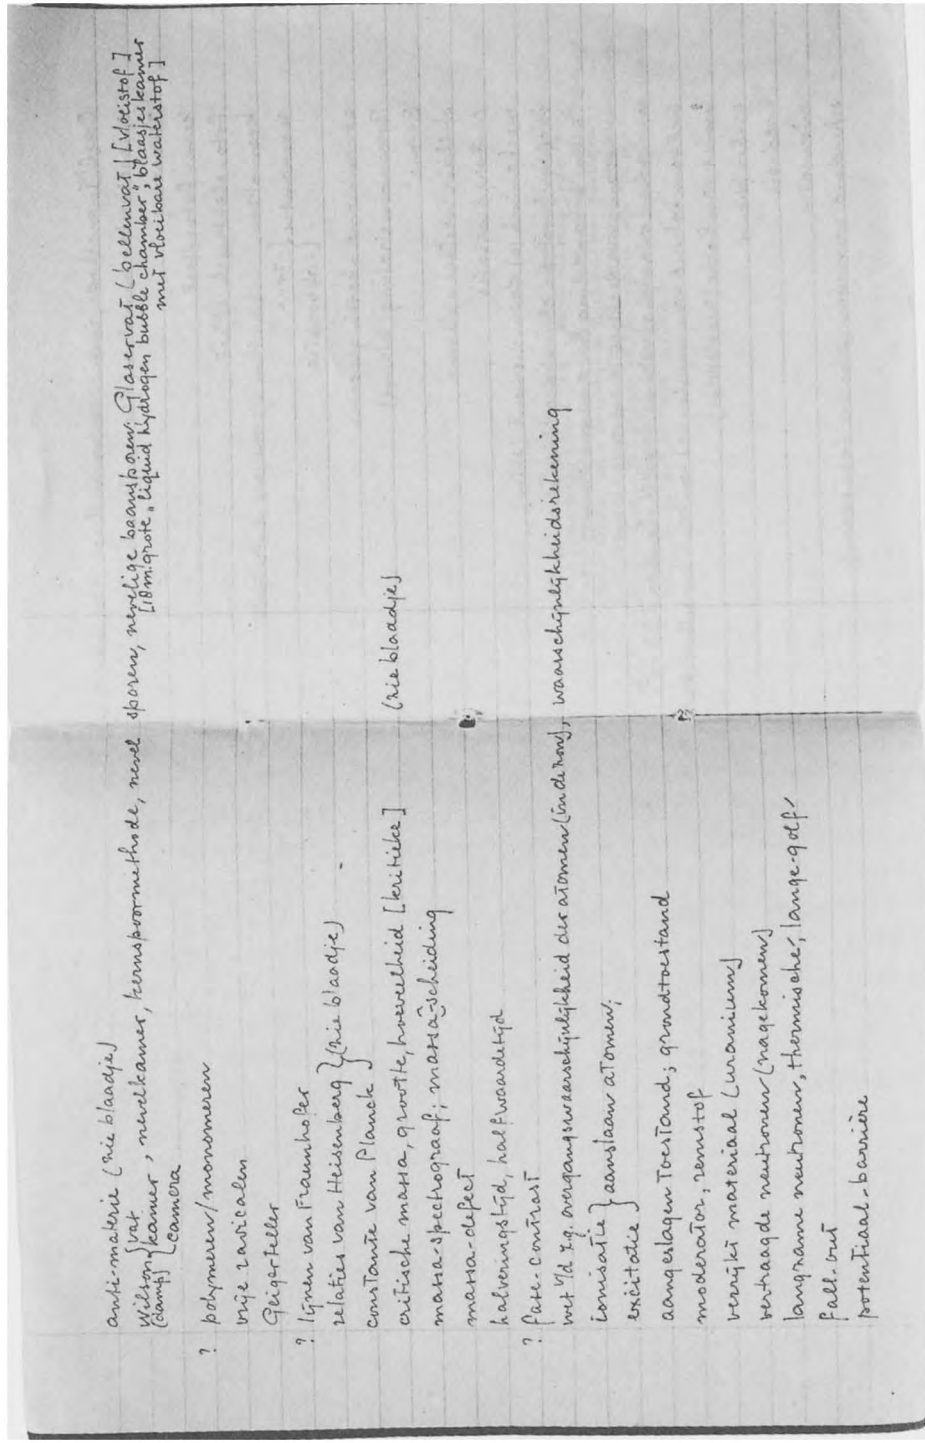 anti-materie (zie blaadje)
Wilson { vat, kamer, camera }, nevelkamer, kernspoormethode, nevelsporen, nevelige baansporen; Glaservat (bellenvat) [vloeistof]
(damp) [18 m. grote „liquid hydrogen bubble chamber”; blaasjeskamer
met vloeibare waterstof]
? polymeren/monomeren
vrije radicalen
Geigerteller
? lijnen van Fraunhofer
relaties van Heisenberg } (zie blaadje)
constante van Planck }
critische massa, grootte, hoeveelheid [kritieke] (zie blaadje)
massa-spectrograaf; massa-scheiding
massa-defect
halveringstijd, halfwaardetijd
? fase-contrast
wet v/d z.g. overgangswaarschijnlijkheid der atomen (in de zon), waarschijnlijkheidsrekening
ionisatie } aanslaan atomen;
excitatie }
aangeslagen toestand; grondtoestand
moderator, remstof
verrijkt materiaal (uranium)
vertraagde neutronen (nagekomen)
langzame neutronen, thermische-, lange-golf-
fall-out
potentiaal-barrière